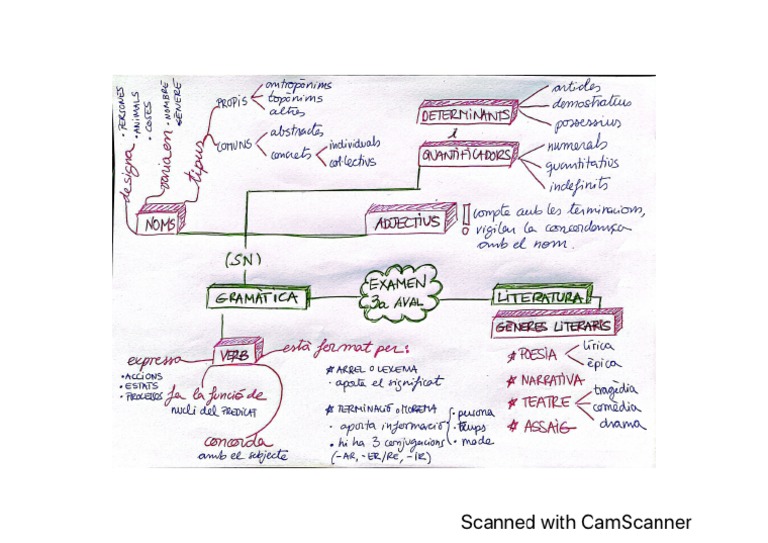 designa
· PERSONES
· ANIMALS
· COSES
varia en
· NOMBRE
· GÈNERE
tipus
PROPIS
antropònims
topònims
altres
COMUNS
abstractes
concrets
individuals
col·lectius
NOMS
DETERMINANTS
i
QUANTIFICADORS
articles
demostratius
possessius
numerals
quantitatius
indefinits
ADJECTIUS
!
compte amb les terminacions,
vigilen la concordança
amb el nom.
(SN)
GRAMÀTICA
EXAMEN
3a AVAL
LITERATURA
GÈNERES LITERARIS
* POESIA
lírica
èpica
* NARRATIVA
* TEATRE
tragèdia
comèdia
drama
* ASSAIG
VERB
expressa
· ACCIONS
· ESTATS
· PROCESSOS
fa la funció de
nucli del PREDICAT
concorda
amb el subjecte
està format per:
* ARREL O LEXEMA
· aporta el significat
* TERMINACIÓ O MOREMA
· aporta informació
· persona
· temps
· mode
· hi ha 3 conjugacions
(-AR, -ER/RE, -IR)
Scanned with CamScanner